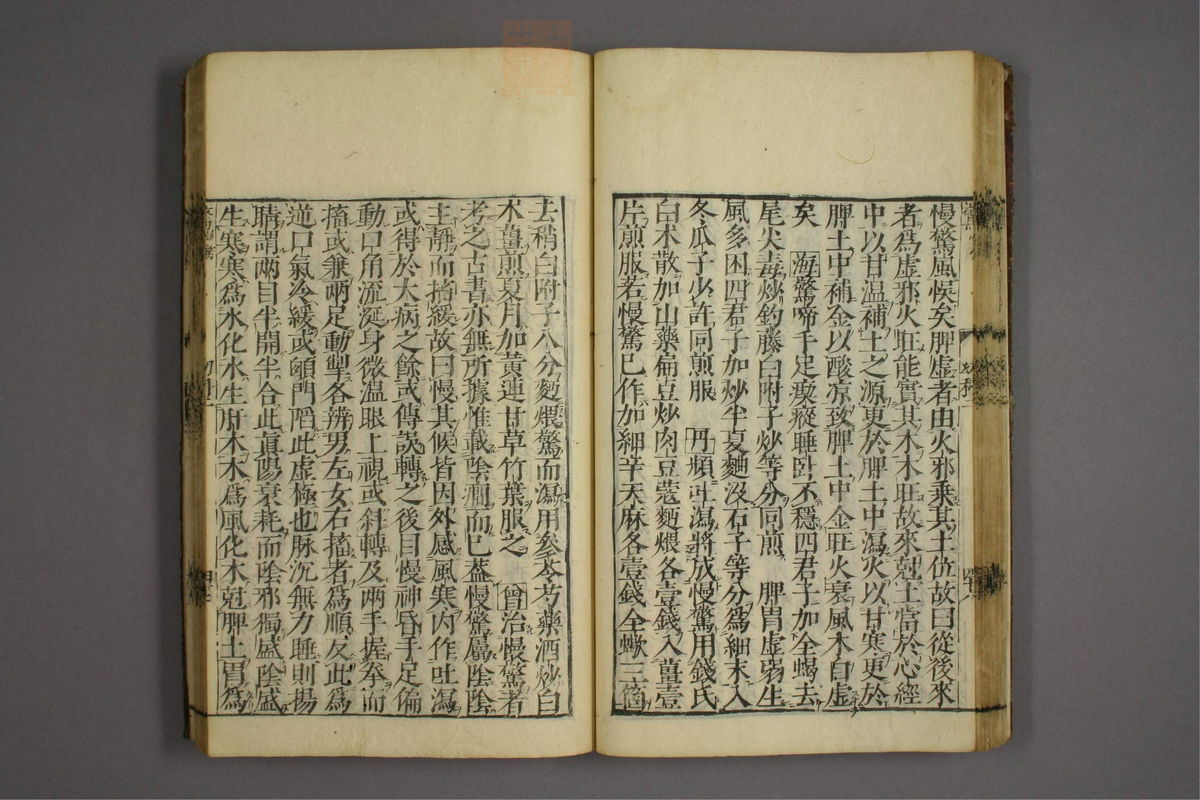 慢驚風候矣脾虚者由火邪乘其土位故曰從後來
者為虚邪火旺能實其木木旺故來尅土當於心經
中以甘温補土之源更於脾土中瀉火以甘寒更於
脾土中補金以酸凉致脾土中金旺火衰風木自虚
矣 海驚啼手足瘈瘲睡卧不穩四君子加全蝎去
尾火毒炒釣藤白附子炒等分同煎 脾胃虚弱生
風多困四君子加炒半夏麯没石子等分為細末入
冬瓜子少許同煎服 丹頻吐瀉將成慢驚用錢氏
白术散加山藥扁豆炒肉豆蔻麪煨各壹錢入薑壹
片煎服若慢驚已作加細辛天麻各壹錢全蠍三箇
去稍白附子八分麪煨驚而瀉用參苓芍藥酒炒白
术薑煎夏月加黄連甘草竹葉服之 曾治慢驚者
考之古書亦無所據惟載陰癎而已葢慢驚屬陰陰
主静而搐緩故曰慢其候皆因外感風寒内作吐瀉
或得於大病之餘或傳誤轉之後目慢神昏手足偏
動口角流涎身微温眼上視或斜轉及兩手握拳而
搐或兼兩足動掣各辨男左女右搐者為順反此為
逆口氣冷緩或顖門䧟此虚極也脉沉無力睡則揚
睛謂兩目半開半合此真陽衰耗而陰邪獨盛陰盛
生寒寒為水化水生肝木木為風化木尅脾土胃為